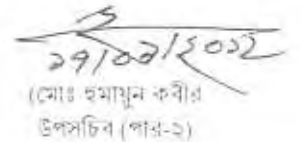 ২৭/০৯/২০১২
(মোঃ হুমায়ুন কবীর
উপসচিব (পার-২)